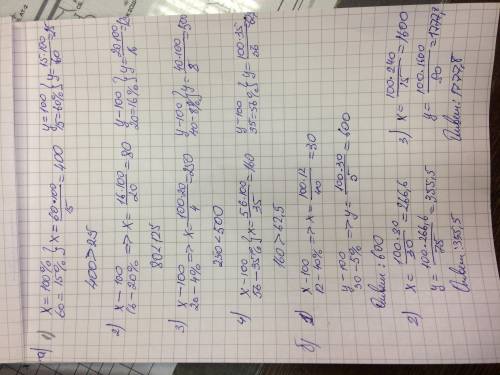 а) 1) x = 100% } x = 60*100/15 = 400 y = 100 } y = 15·100/60 = 25
60 = 15% 15 = 60%
400 > 25
2) x - 100
16 - 20% => x = 16·100/20 = 80 y - 100
20 = 16% } y = 20·100/16
80 < 125
3) x - 100
20 - 4% => x = 100·20/4 = 250 y - 100
40 - 8% } y = 40·100/8 = 500
250 < 500
4) x - 100
56 - 35% } x = 56·100/35 = 160 y - 100
35 = 56% } y = 100·35/56
160 > 62,5
б) x - 100
12 - 40% => x = 100·12/40 = 30
y - 100
30 - 5% => y = 100·30/5 = 600
Ответ: 600
2) x = = 266,6
y = 100·266,6/75 = 355,5
Ответ: 355,5
3) x = 100·240/15 = 1600
y = 100·1600/90 = 1777,8
Ответ: 1777,8